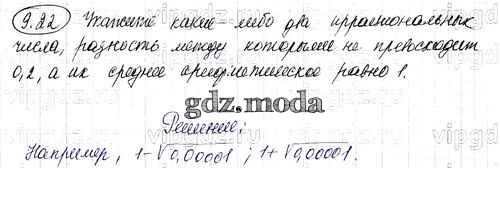 9.22 Укажите какие-либо два иррациональных
числа, разность между которыми не превосходит
0,2, а их среднее арифметическое равно 1.
gdz.moda
Решение:
Например, 1-√0,00001 ; 1+√0,00001.